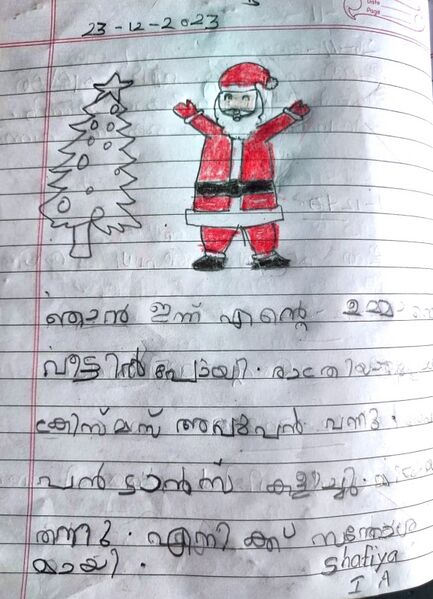 Date
Page
23-12-2023
ഞാൻ ഇന്ന് എന്റെ ഉമ്മ
വീട്ടിൽ പോയി. രാത്രിയ
ക്രിസ്മസ് അപ്പൂപ്പൻ വന്നു.
പൻ ഡാൻസ് കളിച്ചു.
തന്നു. എനിക്ക് സന്തോഷ
മായി.
Shafiya
I A